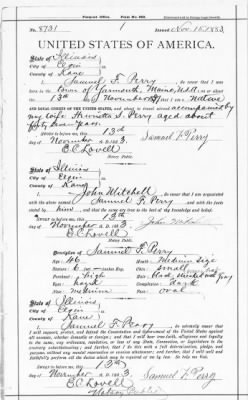 Passport Office. Form No. 192.
No. 8731 1 Issued Nov. 15. 1883
UNITED STATES OF AMERICA.
State of Illinois
Elgin
County of Kane
I, Samuel F. Perry, do swear that I was
born in the town of Yarmouth, Maine, on or about the
13th of November; that I am a Native
AND LOYAL CITIZEN OF THE UNITED STATES, and about to travel abroad accompanied by
my wife Henrietta S. Perry aged about
forty years.
Sworn to before me, this 13th
day of November, 1883
E C Lovell Samuel F. Perry
Notary Public.
State of Illinois
Elgin
County of Kane
I, John Mitchell, do swear that I am acquainted
with the above named Samuel F. Perry, and with the facts
stated by him, and that the same are true to the best of my knowledge and belief.
Sworn to before me, this 13th
day of November, 1883
E C Lovell
Notary Public.
Description of Samuel F. Perry
Age: 46
Stature: 6
Forehead: high
Eyes: hazel
Nose: medium
Mouth: Medium size
Chin: small
Hair: Black, sprinkled with gray
Complexion: dark
Face: oval
State of Illinois
Elgin
County of Kane
I, Samuel F. Perry, do solemnly swear that I
will support, protect, and defend the Constitution and Government of the United States against
all enemies, whether domestic or foreign; and that I will bear true faith, allegiance and loyalty
to the same, any ordinance, resolution or law of any State, Convention, or Legislature to the
contrary notwithstanding; and further, that I do this with a full determination, pledge, and
purpose, without any mental reservation or evasion whatsoever; and further, that I will well and
faithfully perform all the duties which may be required of me by law. So help me God.
Sworn to before me, this 13th
day of November, 1883 Samuel F. Perry
E C Lovell
Notary Public